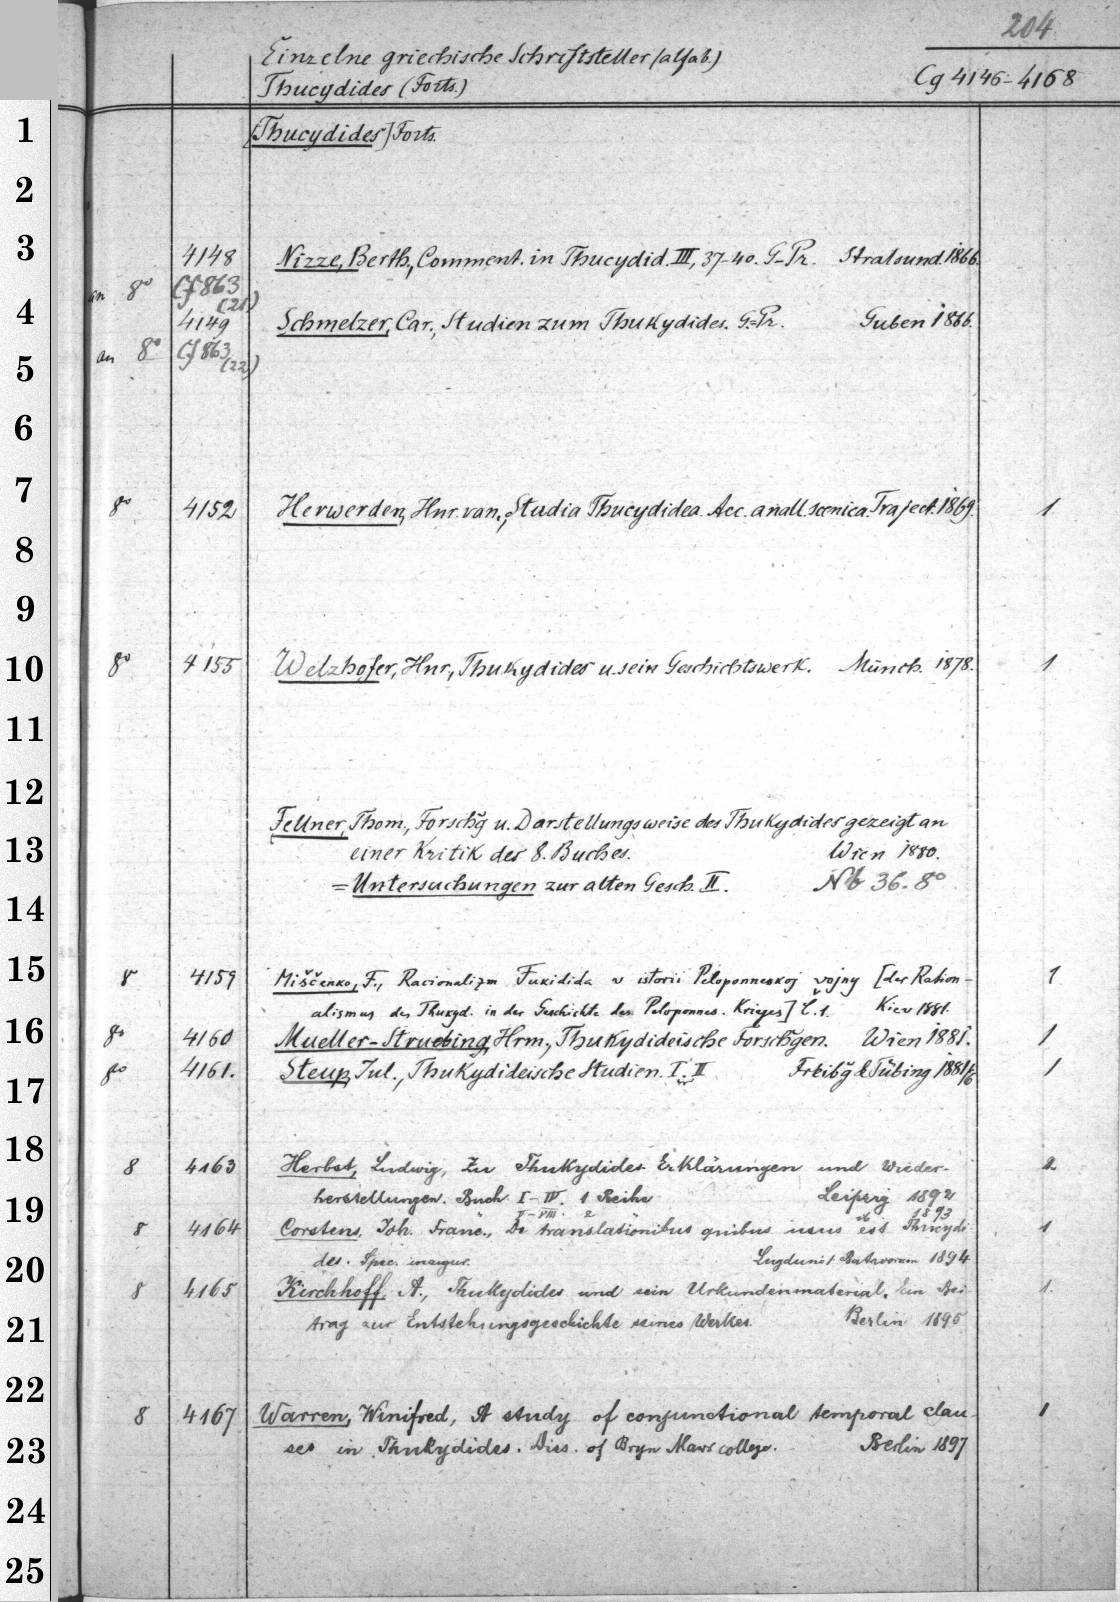 204
Einzelne griechische Schriftsteller (alfab.)
Thucydides (Forts.)
Cg 4146-4168
1
[Thucydides] Forts.
2
3
4148 Nizze, Berth., Comment. in Thucydid. III, 37-40. G-Pr. Stralsund. 1866.
an 8° Cf 863 (21)
4
4149 Schmelzer, Car., Studien zum Thukydides. G.=Pr. Guben 1866.
an 8° Cf 863 (22)
5
6
7
8° 4152 Herwerden, Hnr. van., Studia Thucydidea. Acc. anall. scenica. Traject. 1869. 1
8
9
10
8° 4155 Welzhofer, Hnr., Thukydides u. sein Geschichtswerk. Münch. 1878. 1
11
12
Fellner, Thom., Forschg u. Darstellungsweise des Thukydides gezeigt an
13
einer Kritik des 8. Buches. Wien 1880.
= Untersuchungen zur alten Gesch. II. Nb 36. 8°
14
15
8° 4159 Miščenko, F., Racionalizm Fukidida v istorii Peloponneskoj vojny [der Ration-
alismus des Thukyd. in der Geschichte des Peloponnes. Krieges] Č. 1. Kiev 1881. 1
16
8° 4160 Mueller-Struebing, Hrm., Thukydideische Forschgen. Wien 1881. 1
8° 4161. Steup, Jul., Thukydideische Studien. I. II Freibg & Tübing 1881/6 1
17
18
8 4163 Herbst, Ludwig, Zu Thukydides Erklärungen und Wieder- 2
herstellungen. Buch I-IV. 1 Reihe Leipzig 1892
19
V-VIII. 2 1893
8 4164 Corstens, Joh. Franc., De translationibus quibus usus est Thucydi- 1
des. Spec. inaugur. Lugduni Batavorum 1894
20
8 4165 Kirchhoff, A., Thukydides und sein Urkundenmaterial. Ein Bei- 1.
trag zur Entstehungsgeschichte seines Werkes. Berlin 1895
21
22
8 4167 Warren, Winifred, A study of conjunctional temporal clau- 1
ses in Thukydides. Diss. of Bryn Mawr college. Berlin 1897
23
24
25